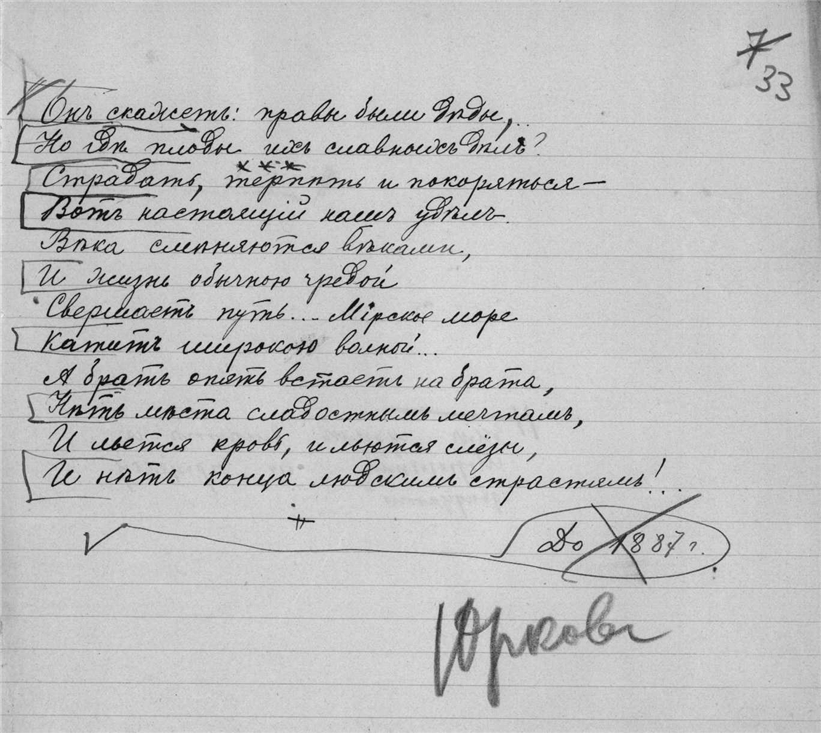 7
33
Онъ скажетъ: правы были дѣды,..
Но гдѣ плоды ихъ славныхъ дѣлъ?
* * *
Страдать, терпѣть и покоряться —
Вотъ настоящій нашъ удѣлъ.
Вѣка смѣняются вѣками,
И жизнь обычною чредой
Свершаетъ путь... Мірское море
Катитъ широкою волной...
А братъ опять встаетъ на брата,
Нѣтъ мѣста сладостнымъ мечтамъ,
И льется кровь, и льются слёзы,
И нѣтъ конца людскимъ страстямъ!..
До 1887 г.